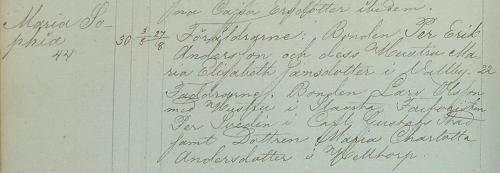 fru Cajsa Ersdotter ibidem.
Maria So-
phia
44
30 3/8 27/8 Föräldrarne: Bonden Per Erik
Andersson och dess Hustru Ma-
ria Elisabeth Jansdotter i Vallby. 22
Faddrarne: Bonden Lars Holm
med Hustru i Hamra,
Per Svedin i Carl Gustafs Stad
samt Dottren Maria Charlotta
Andersdotter i Melltorp.